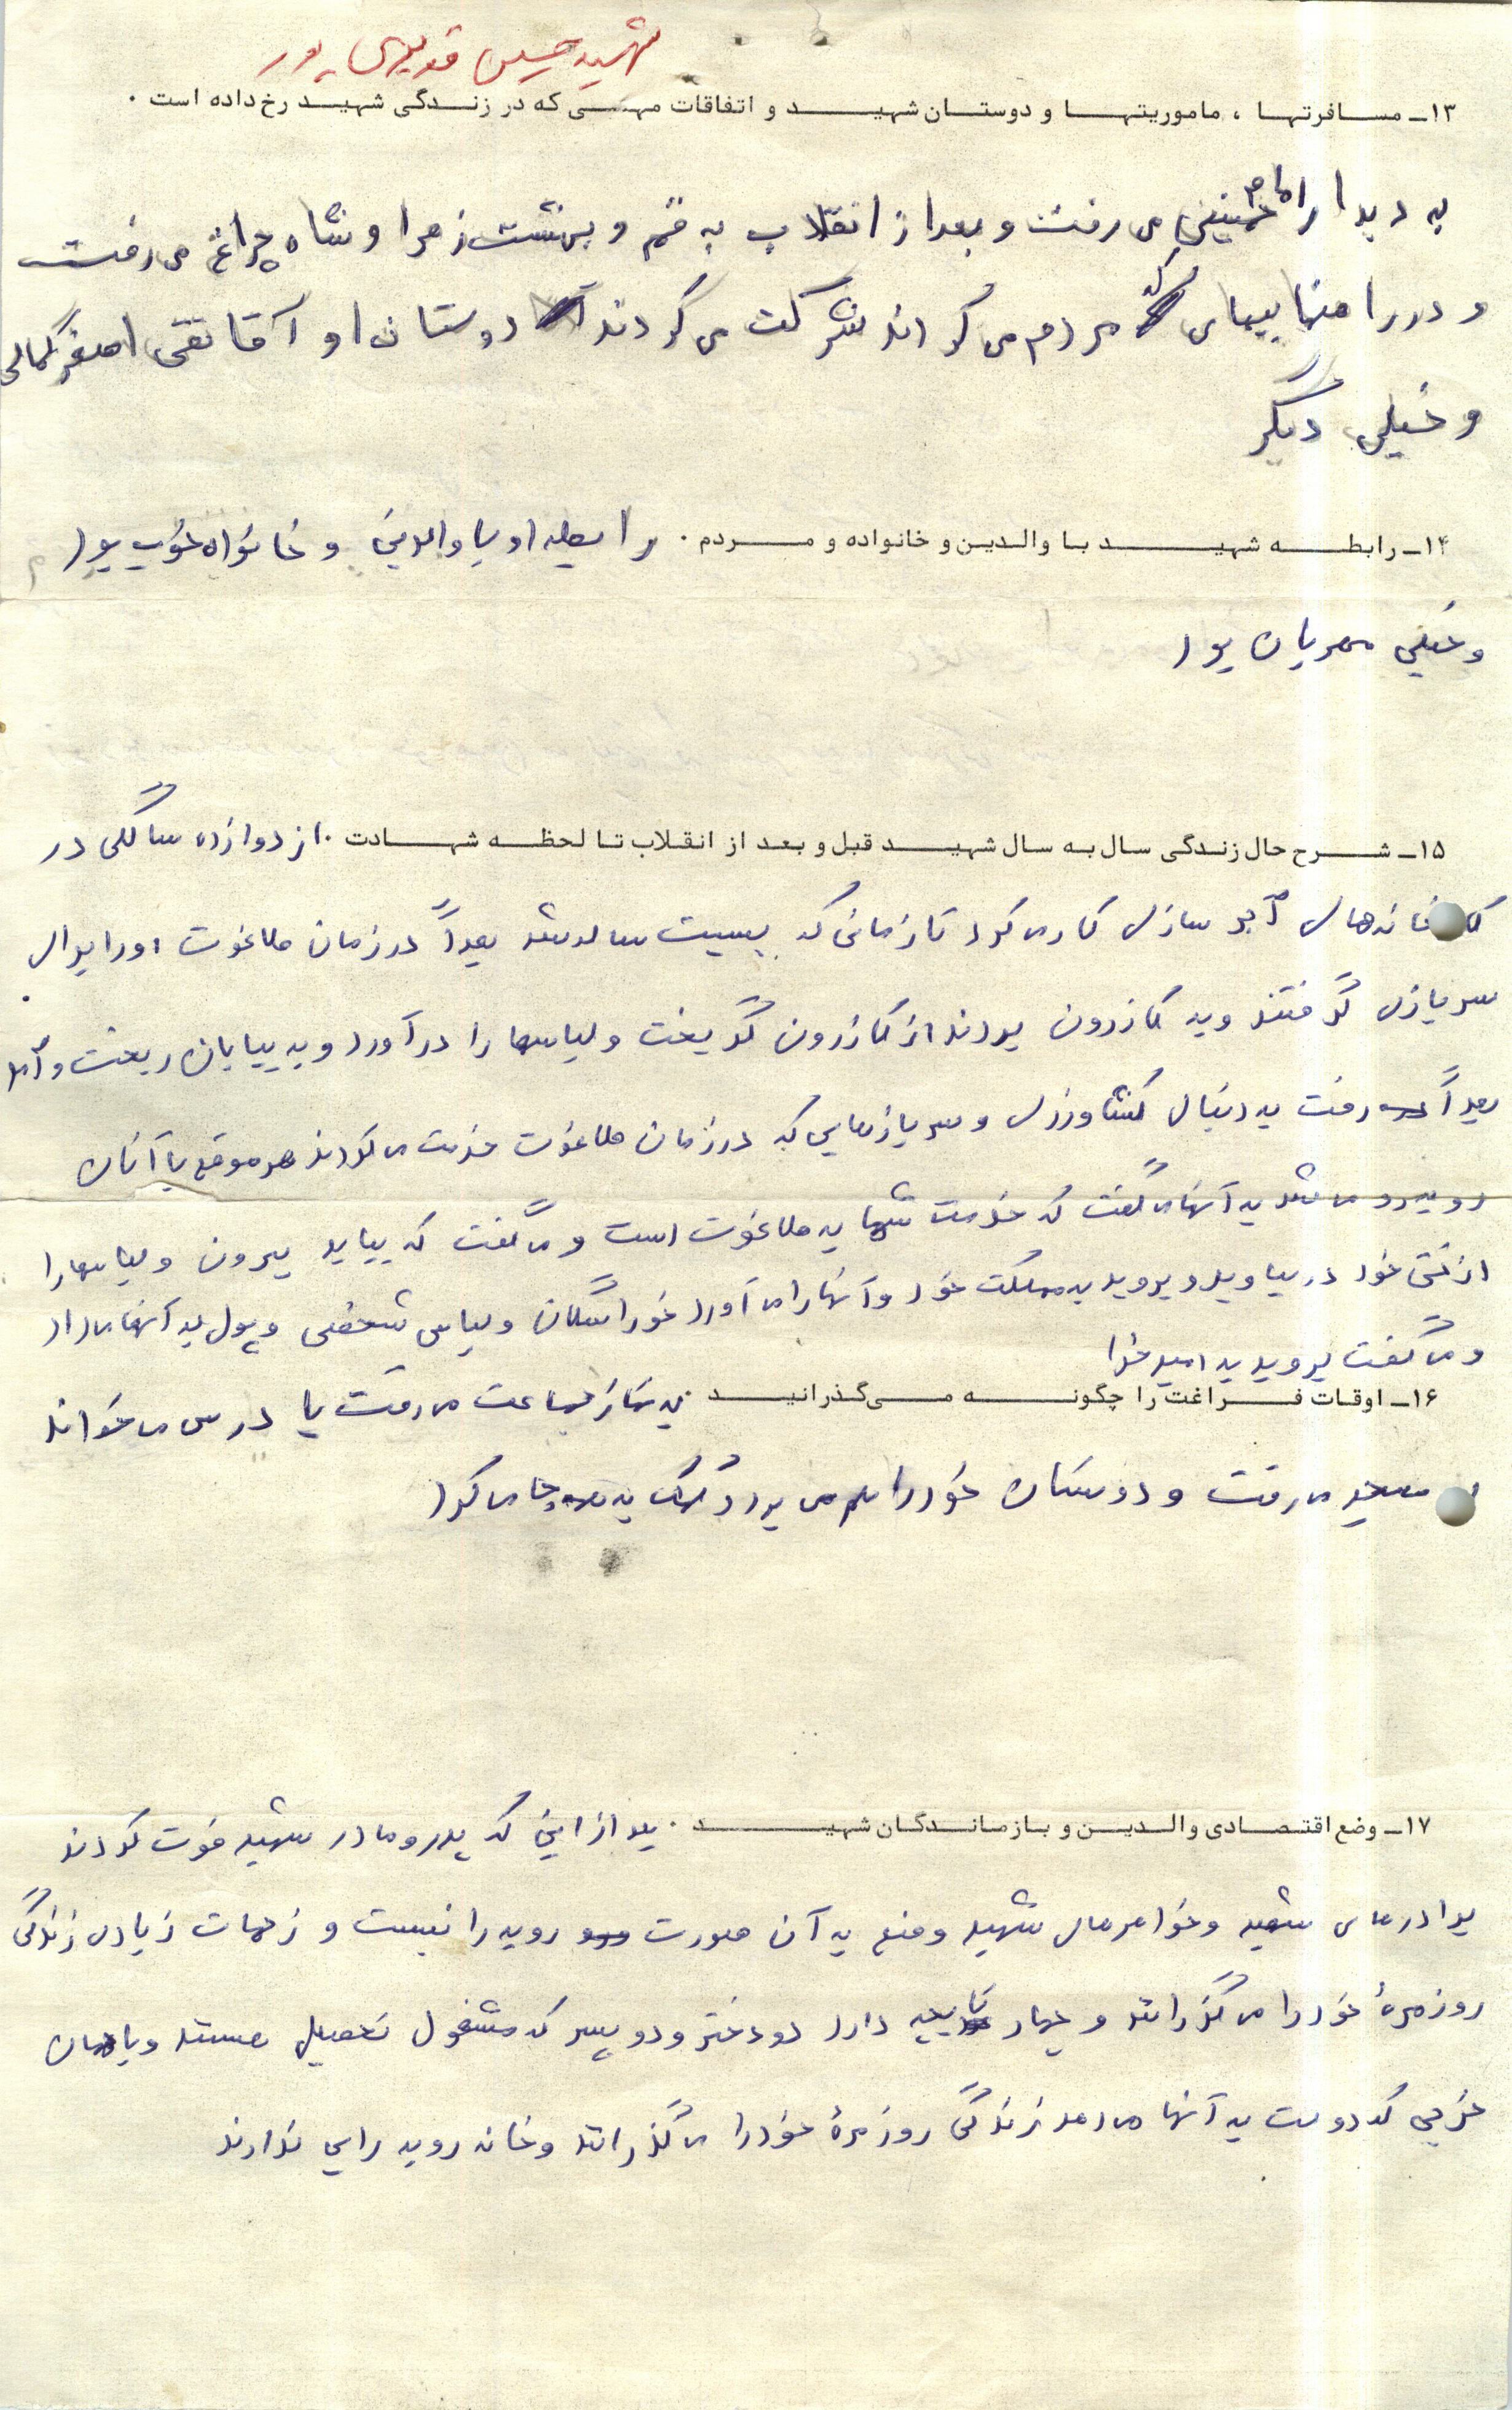 شهید حسین قدیری پور
۱۳ـ مسافرتها ، ماموریتها و دوستان شهید و اتفاقات مهمی که در زندگی شهید رخ داده است .
به دیدار امام خمینی می رفت و بعد از انقلاب به قم و بهشت زهرا و شاه چراغ می رفت
و در راهپیمایی که مردم می کردند شرکت می کردند دوستان او آقا تقی اصغر کمالی
و خیلی دیگر
۱۴ـ رابطه شهید با والدین و خانواده و مردم . رابطه او با والدین و خانواده خوب بود
و خیلی مهربان بود
۱۵ـ شرح حال زندگی سال به سال شهید قبل و بعد از انقلاب تا لحظه شهادت . از دوازده سالگی در
کارخانه های آجر سازی کار می کرد تا زمانی که بیست ساله شد بعداً در زمان طاغوت او را برای
سربازی گرفتند و به کازرون بردند از کازرون گریخت و لباسها را در آورد و به بیابان ریخت و آمد
بعداً رفت به دنبال کشاورزی و سربازهایی که در زمان طاغوت خدمت می کردند هر موقع با آنان
روبرو می شد به آنها می گفت که خدمت شما به طاغوت است و می گفت که بیاید بیرون و لباسها را
از تن خود در بیاورید و بروید به مملکت خود و آنها را می آورد خوراسگان و لباس شخصی و پول به آنها می داد
و می گفت بروید به امید خدا
۱۶ـ اوقات فراغت را چگونه می گذرانید . به نماز جماعت می رفت یا درس می خواند
مسجد می رفت و دوستان خود را هم می برد و کمک به می کرد
۱۷ـ وضع اقتصادی والدین و بازماندگان شهید . بعد از این که پدر و مادر شهید فوت کردند
برادرهای شهید و خواهرهای شهید وضع به آن صورت روبه راه نیست و زحمات زیادی زندگی
روزمرهٔ خود را می گذرانند و چهار تا بچه دارد دو دختر و دو پسر که مشغول تحصیل هستند و با همان
خرجی که دولت به آنها می دهد زندگی روزمرهٔ خود را می گذرانند و خانه روبه راهی ندارند